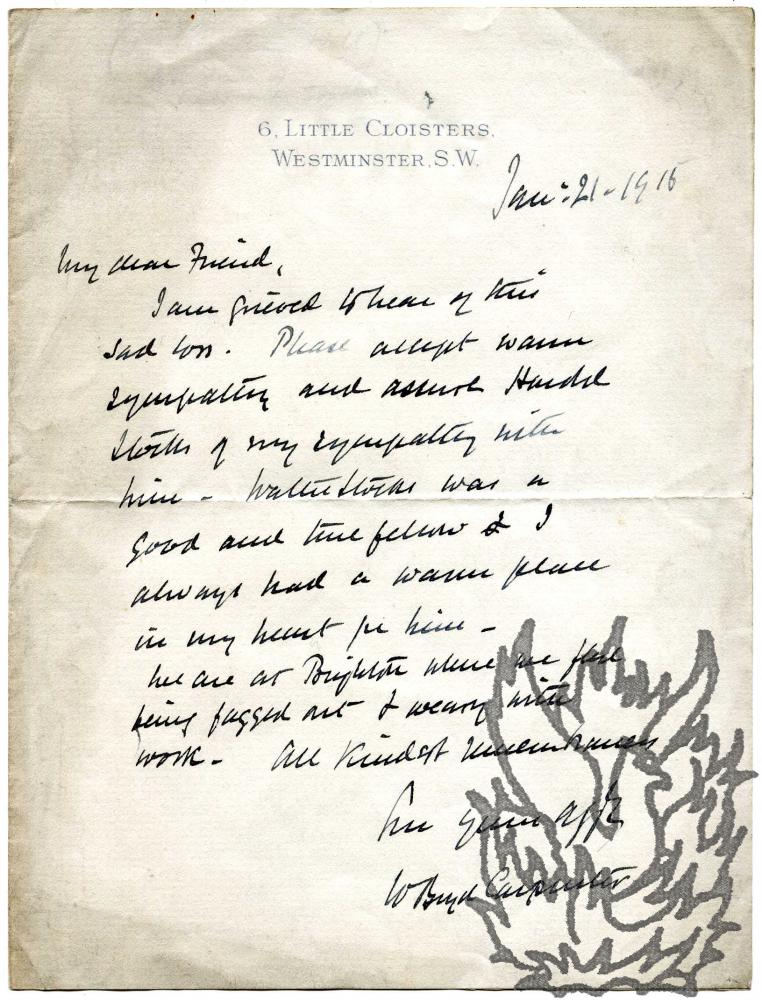 6, LITTLE CLOISTERS,
WESTMINSTER, S.W.
Jan: 21 - 1915
My dear Friend,
I am grieved to hear of this
sad loss. Please accept warm
sympathy and assure Harold
Stocks of my sympathy with
him - Walter Stocks was a
good and true fellow & I
always had a warm place
in my heart for him -
We are at Brighton where we
being fagged out & weary with
work - All kindest remembrances
W Boyd Carpenter